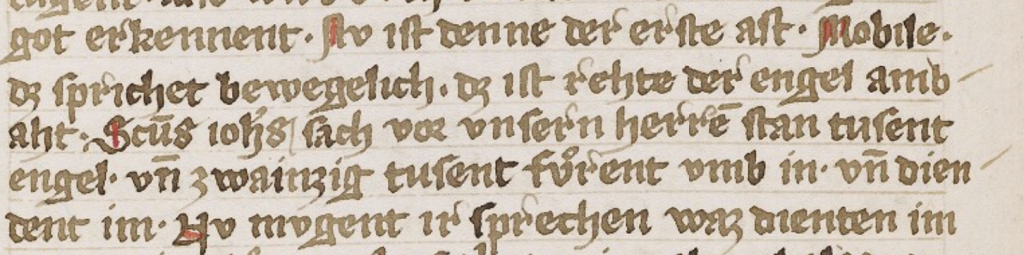 got erkennent. Nv ist denne der erste ast. Mobile.
dz sprichet bewegelich. dz ist rehte der engel amb
aht. Scūs ioh̄s sach vor vnsern herrē stan tusent
engel. vn̄ zwainzig tusent fvͦrent vmb in. vn̄ dien
dent im. Nv mvgent ir sprechen waz dienten im